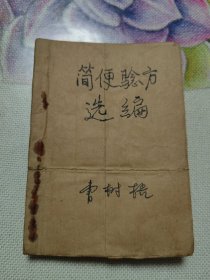 简便验方
选编
曹树